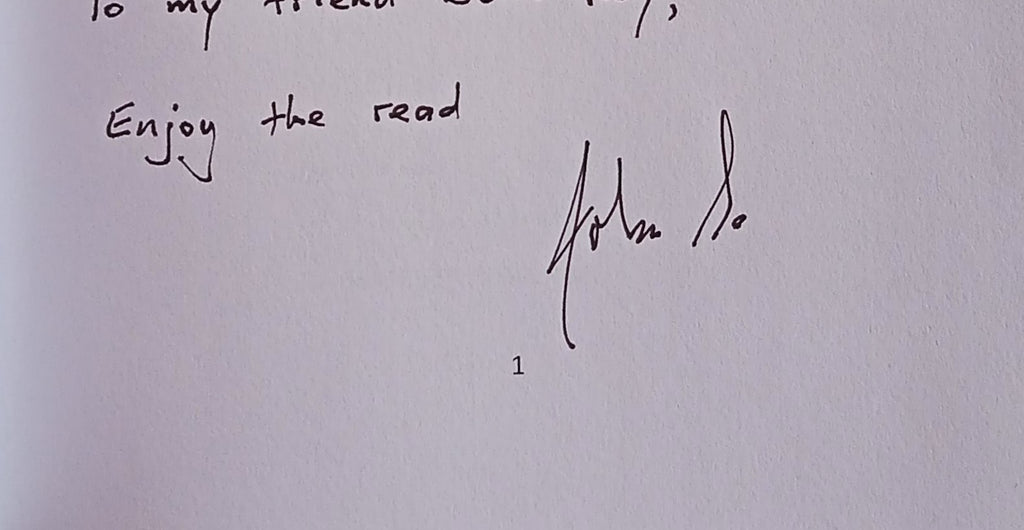 To my friend
Enjoy the read
John S.
1